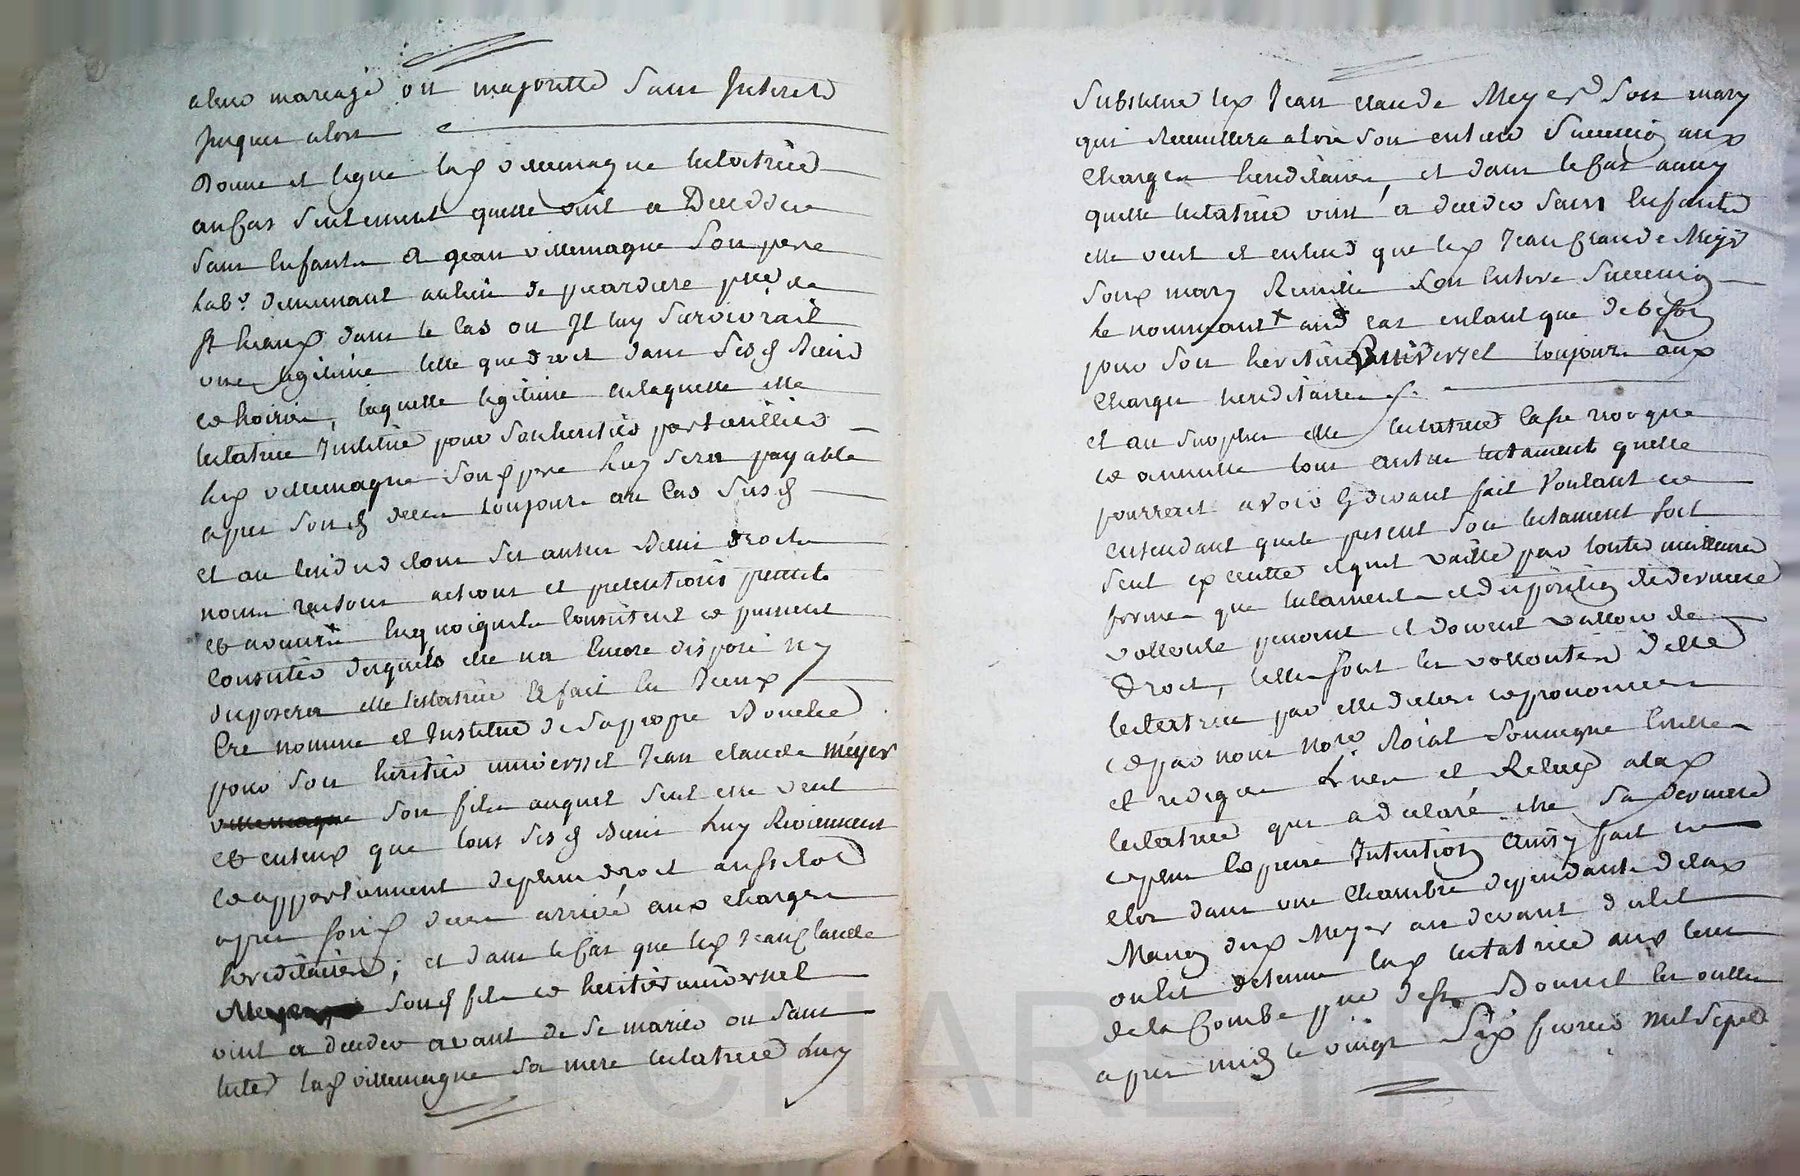 a leur mariage ou majorité sans Interets
jusques alors
Donne et legue lad villemagne testatrice
au cas seulement quelle vint a Decedder
sans Enfants a jean villemagne son pere
hab.t demeurant au lieu de
st dans le Cas ou Il luy Survivrait
une legitime telle que droit dans Sesd Biens
et hoirie, laquelle legitime en laquelle elle
testatrice Institue pour son heritier particullier
led villemagne Sond pere luy sera payable
apres Sond deces toujours au Cas Susd
et au Residu de tous ses autres Biens droits
noms raisons actions et pretentions presents
et avenir En quoiquils Consistent et puissent
Consister desquels elle na Encore disposé ny
disposera elle testatrice a fait En Iceux
Cree nomme et Institue de sa propre Bouche
pour son heritier universsel Jean claude méyer
villemagne son fils auquel seul elle veut
et entend que tous Sesd Biens luy Reviennent
et appartiennent de plein droit aussitot
apres sond deces arrivé aux charges
hereditaires; et dans le Cas que led Jean Claude
Meyer sond fils et heritier universel
vint a deceder avant de se marier ou sans
tester lad villemagne sa mere testatrice luy
Substitue led Jean claude Meyer Son mary
qui Recuillera alors son entiere Succession aux
Charges hereditaires, et dans le Cas aussy
quelle testatrice vint a deceder sans Enfants
elle veut et entend que led Jean Claude Meyer
Sond mary Recuille Son Entiere Succession
Le nommant aud cas entant que de besoin
pour Son heritier Universel toujours aux
Charges hereditaires
et au surplus elle testatrice Casse revoque
et annulle tout autre testament quelle
pourrait avoir Cy devant fait Voulant et
entendant que le present Son testament soit
seul executté et quil vaille par toutte meilleure
forme que testament et disposition de derniere
vollonté peuvent et doivent valloir de
Droit, telles sont les vollontés delle
testatrice par elle dictées et prononcées
et par nous No.re Roial Soussigné Ecrittes
et redigées Lues et Relues a lad
testatrice qui a declaré etre Sa Derniere
et plus Expresse Intention Ainsy fait et
clos dans une Chambre dependante de la
Maison dud Meyer au devant du lit
ou est detenue lad testatrice aud lieu
de la Combe de st Bonnet les oulles
apres midy le vingt Six fevrier mil Sept